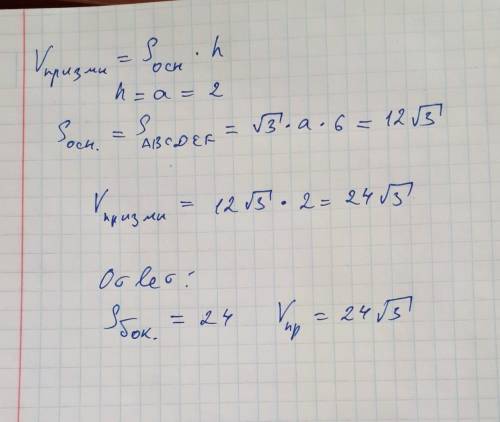 Vпризми = Sосн · h
h = a = 2
Sосн. = SABCDEF = √3 · a · 6 = 12√3
Vпризми = 12√3 · 2 = 24√3
Ответ:
Sбок. = 24 Vпр = 24√3